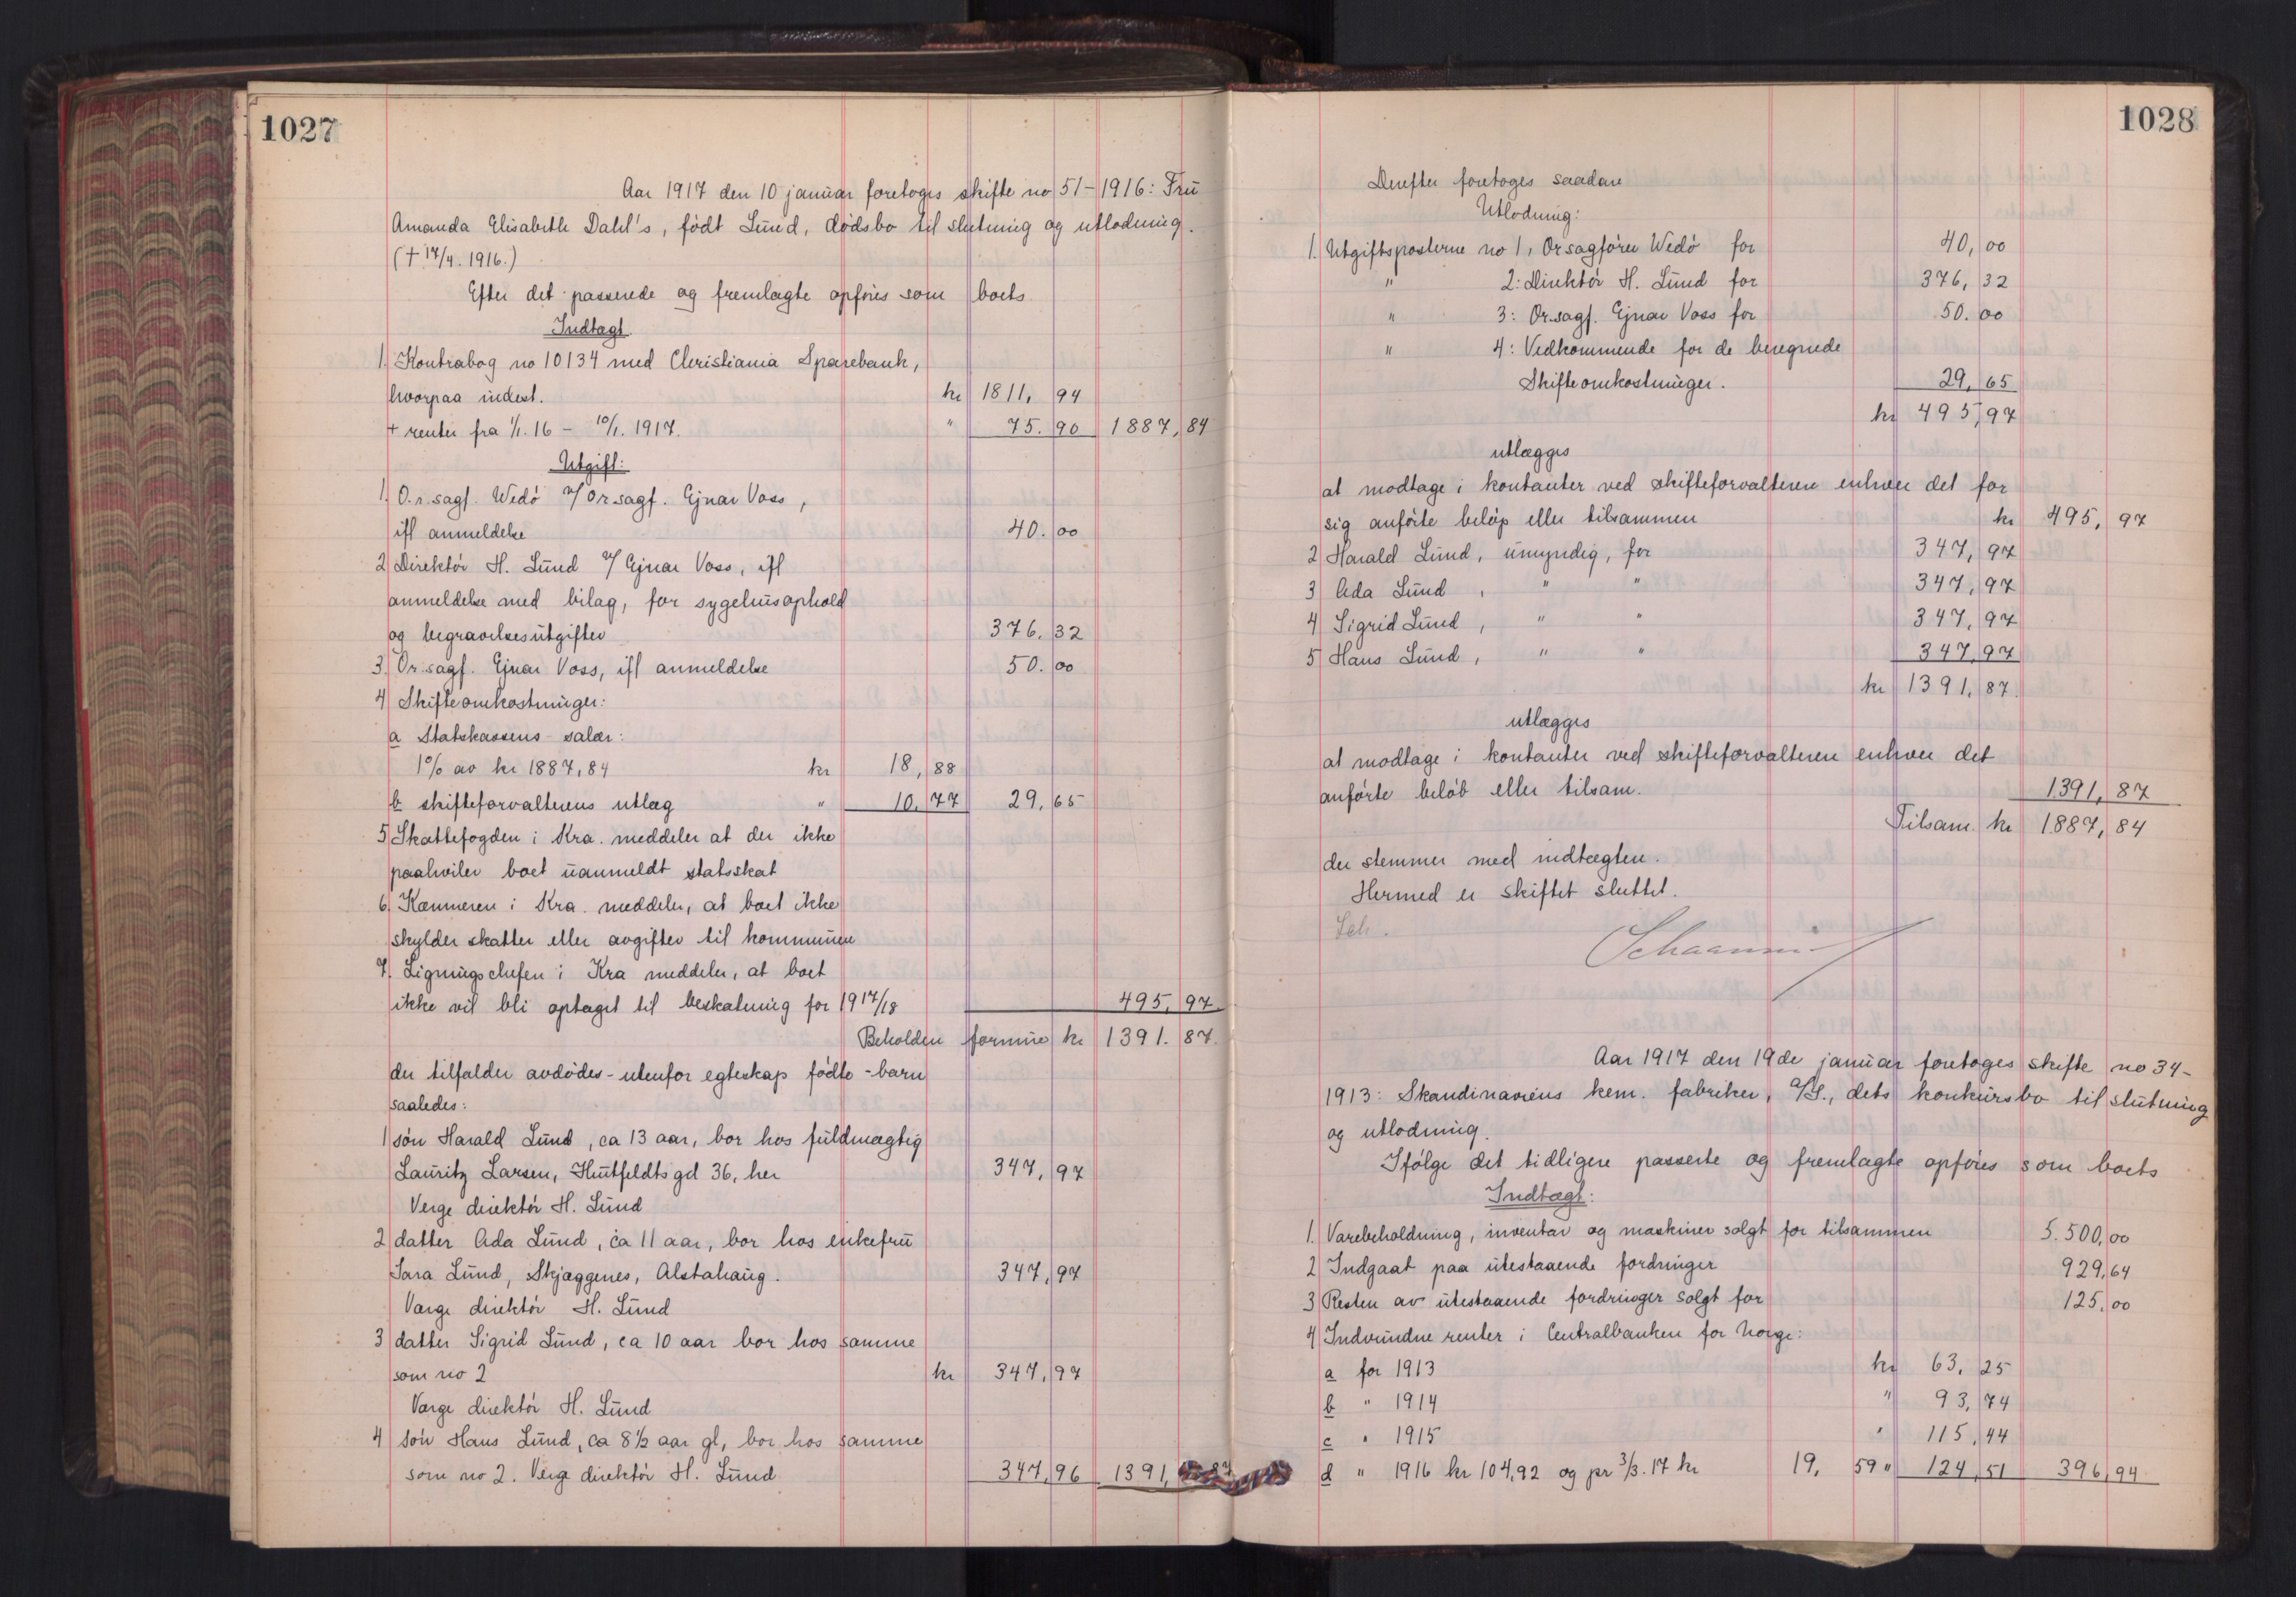 1027
Aar 1917 den 10 januar foretoges skifte no 51-1916: Fru
Amanda Elisabeth Dahl's, født Lund, dødsbo til slutning og utlodning.
(† 17/4. 1916.)
Efter det passerede og fremlagte opføres som boets
Indtægt
1. Kontrabog no 10134 med Christiania Sparebank,
hvorpaa indest. kr 1811, 94
+ renter fra 1/1. 16 - 10/1. 1917. " 75. 90 1887, 84
Utgift:
1. O.r.sagf. Wedø v/ Or.sagf. Ejnar Voss,
ifl anmeldelse 40. 00
2 Direktør H. Lund v/ Ejnar Voss, ifl
anmeldelse med bilag, for sygehusophold
og begravelsesutgifter 376. 32
3. Or.sagf. Ejnar Voss, ifl anmeldelse 50. 00
4 Skifteomkostninger:
a Statskassens salær:
1% av kr 1887,84 kr 18, 88
b skifteforvalterens utlæg " 10. 77 29, 65
5 Skattefogden i Kra. meddeler at der ikke
paahviler boet uanmeldt statsskat
6. Kæmneren i Kra. meddeler, at boet ikke
skylder skatter eller avgifter til kommunen
7. Ligningschefen i Kra meddeler, at boet
ikke vil bli optaget til beskatning for 1917/18 495, 97
Beholden formue kr 1391. 87.
der tilfalder avdødes - utenfor egteskap fødte - barn
saaledes:
1 søn Harald Lund, ca 13 aar, bor hos fuldmægtig
Lauritz Larsen, Huitfeldts gd 36, her 347, 97
Verge direktør H. Lund
2 datter Ada Lund, ca 11 aar, bor hos enkefru
Sara Lund, Skjæggenes, Alstahaug. 347, 97
Værge direktør H. Lund
3 datter Sigrid Lund, ca 10 aar bor hos samme
som no 2 kr 347, 97
Værge direktør H. Lund
4 søn Hans Lund, ca 8 1/2 aar gl, bor hos samme
som no 2. Verge direktør H. Lund 347, 96 1391, 87
1028
Derefter foretoges saadan
Utlodning:
1. Utgiftsposterne no 1, Orsagfører Wedø for 40, 00
" 2: Direktør H. Lund for 376, 32
" 3: Or.sagf. Ejnar Voss for 50. 00
" 4: Vedkommende for de beregnede
Skifteomkostninger. 29, 65
kr 495, 97
utlægges
at modtage i kontanter ved skifteforvalteren enhver det for
sig anførte beløp eller tilsammen kr 495, 97
2 Harald Lund, umyndig, for 347, 97
3 Ada Lund, " " 347, 97
4 Sigrid Lund, " " 347, 97
5 Hans Lund, " " 347, 97
kr 1391, 87.
utlægges
at modtage i kontanter ved skifteforvalteren enhver det
anførte beløb eller tilsam. 1391, 87
Tilsam. kr 1887, 84
der stemmer med indtægten.
Hermed er skiftet sluttet.
Sch.
Aar 1917 den 19de januar foretoges skifte no 34-
1913: Skandinaviens kem. fabriker, A/S., dets konkursbo til slutning
og utlodning.
Ifølge det tidligere passerte og fremlagte opføres som boets
Indtægt:
1. Varebeholdning, inventar og maskiner solgt for tilsammen 5.500, 00
2 Indgaat paa utestaaende fordringer 929, 64
3 Resten av utestaaende fordringer solgt for 125, 00
4 Indvundne renter i Centralbanken for Norge:
a for 1913 kr 63, 25
b " 1914 " 93, 74
c " 1915 " 115, 44
d " 1916 kr 104,92 og pr 3/3. 17 kr 19, 59 " 124, 51 396, 94